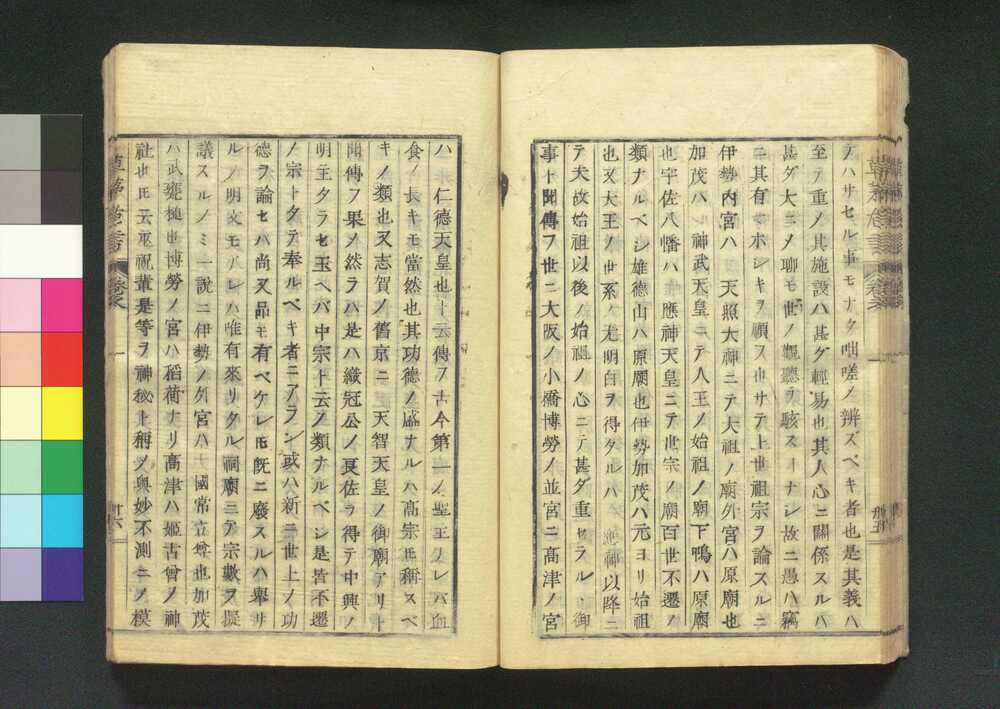 テハサセル事モナク咄嗟ノ辨ズベキ者也是其義ハ
至テ重ノ其施設ハ甚ダ輕易也其人心ニ關係スルハ
甚ダ大ニメ聊モ世ノ觀聽ヲ駭スヿナシ故ニ愚ハ竊
ニ其有マホシキヲ願フ也サテ上世祖宗ヲ論スルニ
伊勢內宮ハ 天照大神ニテ大祖ノ廟外宮ハ原廟也
加茂ハ 神武天皇ニテ人王ノ始祖ノ廟下鴨ハ原廟
也宇佐八幡ハ 應神天皇ニテ世宗ノ廟百世不遷ノ
類ナルベシ雄德山ハ原廟也伊勢加茂ハ元ヨリ始祖
也又大王ノ世系ノ尤明白ヲ得タルハ 應神以降ニ
テ夫故始祖以後ノ始祖ノ心ニテ甚ダ重セラルヽ御
事ト聞傳フ世ニ大阪ノ小橋博勞ノ並宮ニ高津ノ宮
ハ 仁德天皇也ト云傳フ古今第一ノ聖王ナレバ血
食ノ長キモ當然也其功德ノ盛ナルハ高宗𪜈稱スベ
キノ類也又志賀ノ舊京ニ 天智天皇ノ御廟アリト
聞傳フ果メ然ラハ是ハ織冠公ノ良佐ヲ得テ中興ノ
明王タラセ玉ヘバ中宗ト云ノ類ナルベシ是皆不遷
ノ宗トタテ奉ルベキ者ニアラン或ハ新ニ世上ノ功
德ヲ論セバ尚又品モ有ベケレ𪜈旣ニ廢スルハ擧サ
ルノ明文モアレハ唯有來リタル祠廟ニテ宗數ヲ擬
議スルノミ一說ニ伊勢ノ外宮ハ 國常立尊也加茂
ハ武甕槌也博勞ノ宮ハ稻荷ナリ高津ハ姬古曾ノ神
社也𪜈云巫祝輩是等ヲ神秘ト稱メ奧妙不測ニメ模